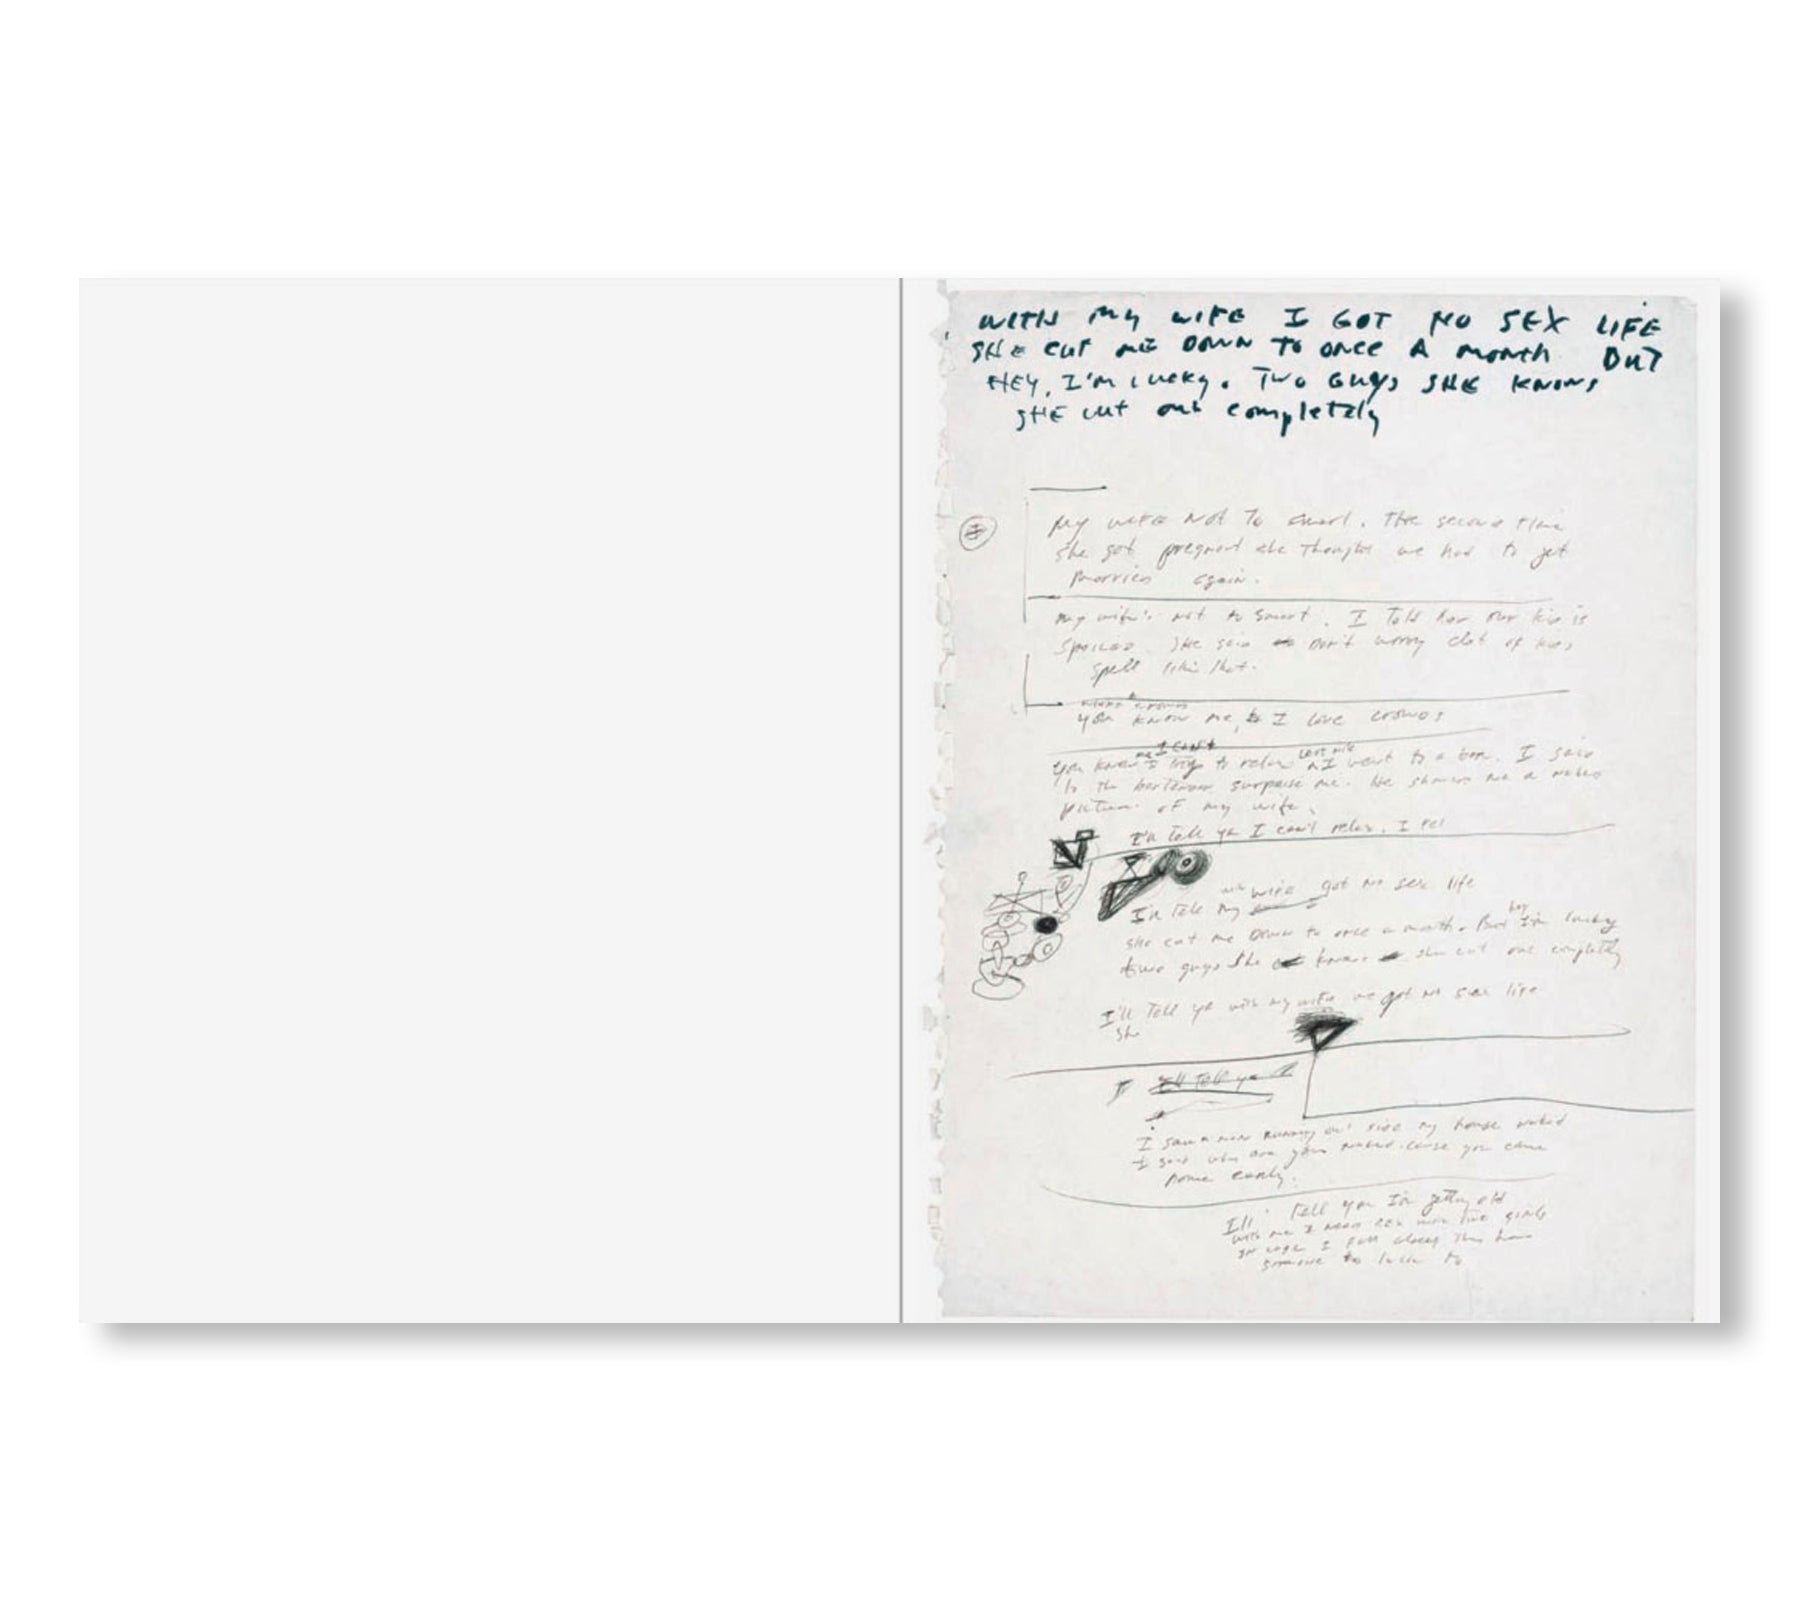 WITH MY WIFE I GOT NO SEX LIFE
SHE CUT ME DOWN TO ONCE A MONTH BUT
HEY, I'M LUCKY. TWO GUYS SHE KNOWS
SHE CUT OUT COMPLETELY
My wife not to smart. The second time
she got pregnant she thought we had to get
married again.
my wife's not to smart. I told her our kid is
spoiled. She said Don't worry alot of kids
spell like that.
you know me, I love crowds
me I can't last nite
you know I try to relax I went to a bar. I said
to the bartender surprise me. He shows me a naked
picture of my wife.
I'll tell ya I can't relax. I
with wife got no sex life
I'll tell my
hey
she cut me down to once a month. But I'm lucky
two guys she knows she cut out completely
I'll tell ya with my wife we got no sex life
She
I
I'll tell ya
I saw a man running out side my house naked
I said why are you naked. cause you came
home early.
I'll tell you I'm getting old
with me I need sex with two girls
in case I fall asleep they have
someone to talk to